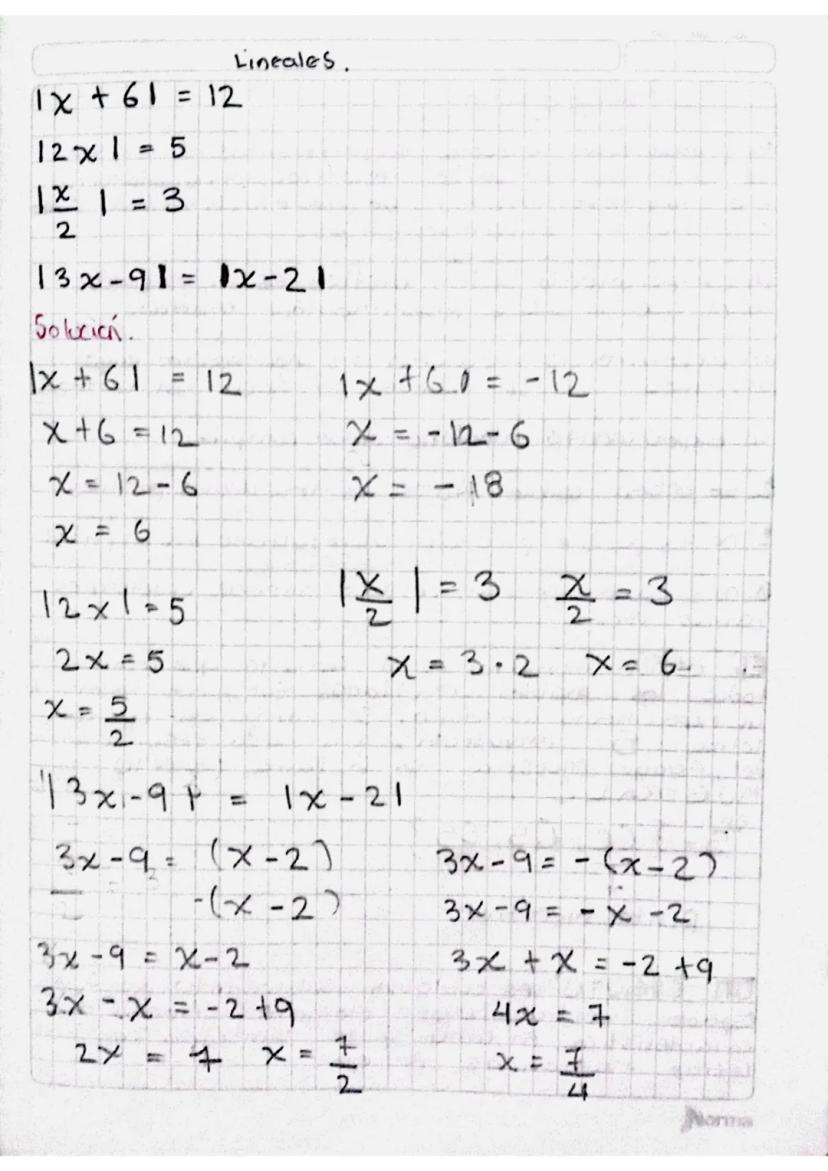 Lineales.
|x + 6| = 12
|2x| = 5
|x/2| = 3
|3x-9| = |x-2|
Solución.
|x + 6| = 12
x+6 = 12
x = 12-6
x = 6
|x +6| = -12
x = -12-6
x = -18
|2x| = 5
2x = 5
x = 5/2
|x/2| = 3 x/2 = 3
x = 3·2 x = 6
|3x-9| = |x-2|
3x-9 = (x-2)
-(x-2)
3x-9 = x-2
3x-x = -2+9
2x = 7 x = 7/2
3x-9 = -(x-2)
3x-9 = -x-2
3x + x = -2+9
4x = 7
x = 7/4
Norma